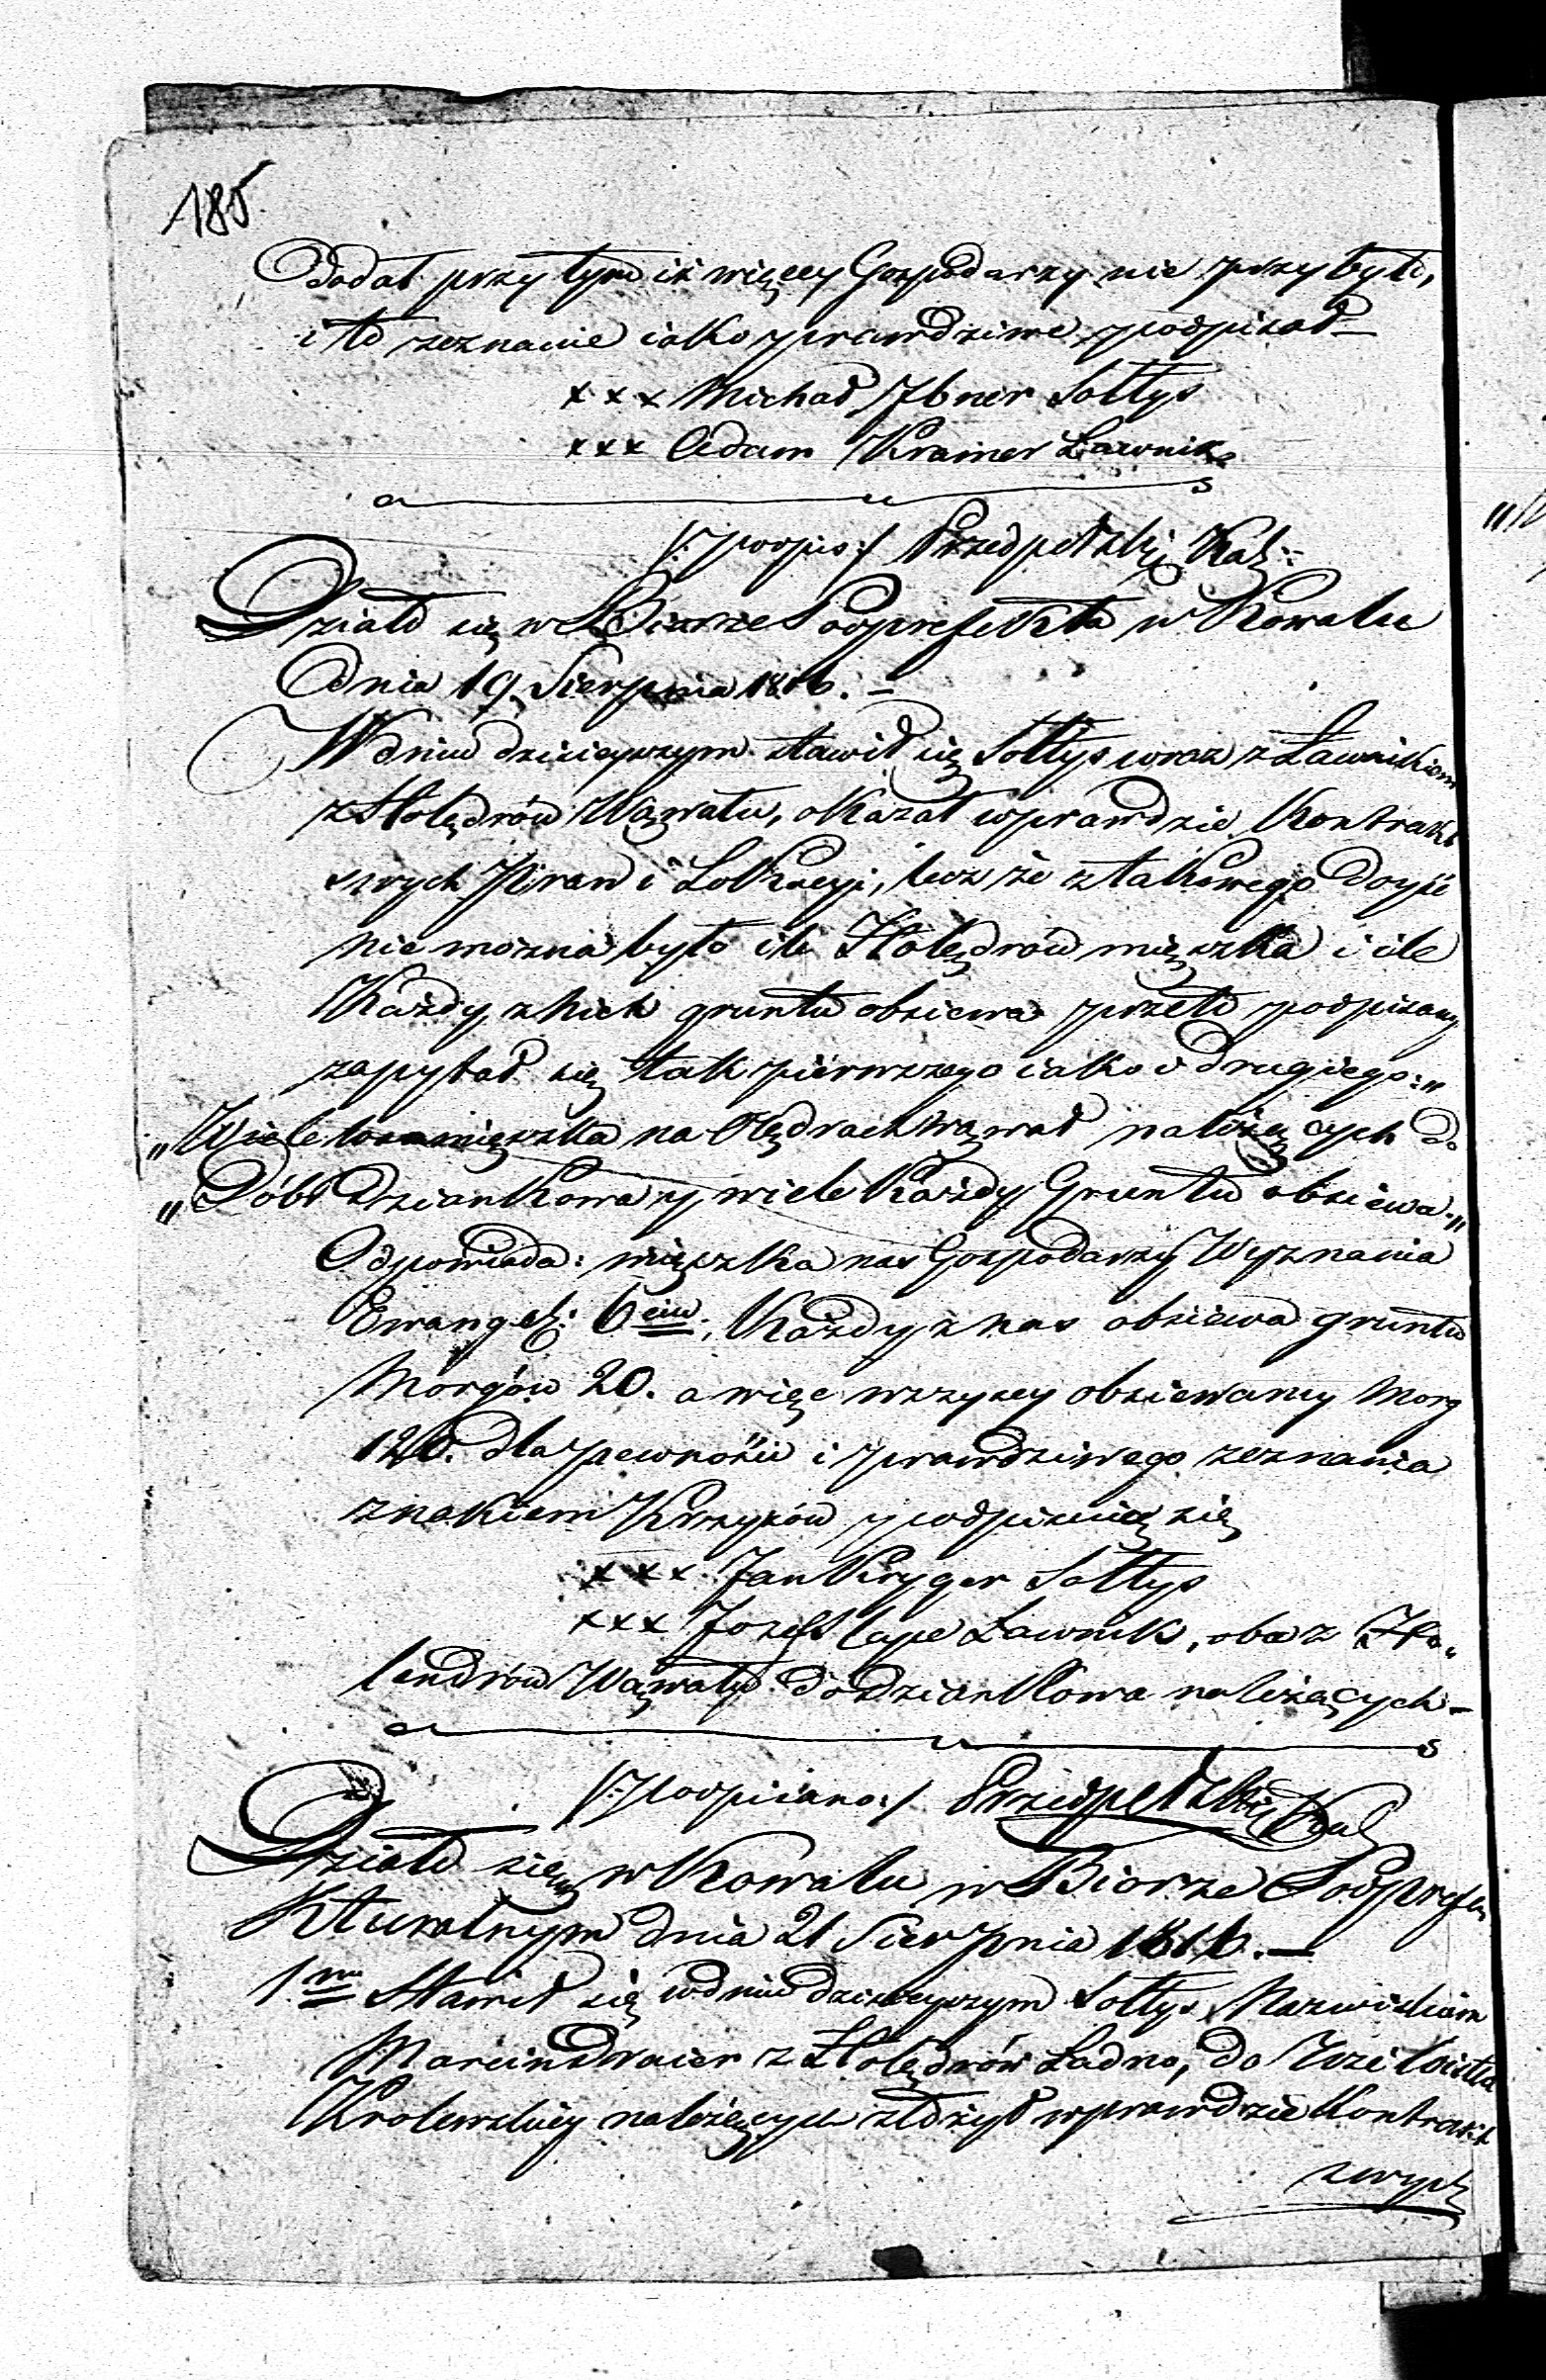 185.
Dodał przy tym iż więcey Gospodarzy nie przybyło,
i to zeznanie iako prawdziwe podpisał –
xxx Michał Jbner Sołtys
xxx Adam Kramer Ławnik
/:podpis:/ Przedpełski Kal:
Działo się w Biorze Podprefekta w Kowalu
dnia 19 Sierpnia 1816. –
W dniu dzisieyszym stawił się Sołtys wraz z Ławnikiem
z Holędrów Wąwału, okazał wprawdzie Kontrakt
swych Praw i Lokacyi, lecz że z takowego doyść
nie można było ile Holędrów mięszka i ile
Każdy z nich gruntu obsiewa przeto podpisany
zapytał się tak pierwszego iako i drugiego:„
„Wiele was mięszka na Olędrach Wąwał należących do
„Dóbr Dziankowa y wiele Każdy Gruntu obsiewa.„
Odpowiada: mięszka nas Gospodarzy Wyznania
Ewangel: 6ciu; Każdy z nas obsiewa gruntu
Morgów 20. a więc wszyscy obsiewamy Morg
120. dla pewności i prawdziwego zeznania
znakiem Krzyżów podpisuią się
xxx Jan Kryger Sołtys
xxx Jozef Cape Ławnik, oba z Ho„
lendrów Wąwału do Dziankowa należących –
/:Podpisano:/ Przedpełski Kal
Działo się w Kowalu w Biorze Podprefe„
Kturalnym dnia 21 Sierpnia 1816. –
1mo Stawił się w dniu dzisieyszym Sołtys Nazwiskiem
Marcin Draier z Holędrów Ladno, do Wsi
Krolewskiey należących złożył wprawdzie Kontrakt
swych